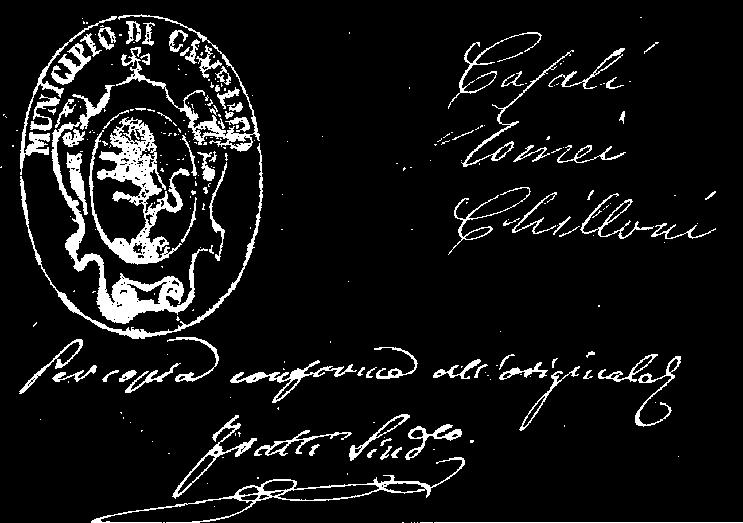 MUNICIPIO DI
Casali
Tomei
Chilloni
Per copia conforme all'originale
Fratti Sind.co